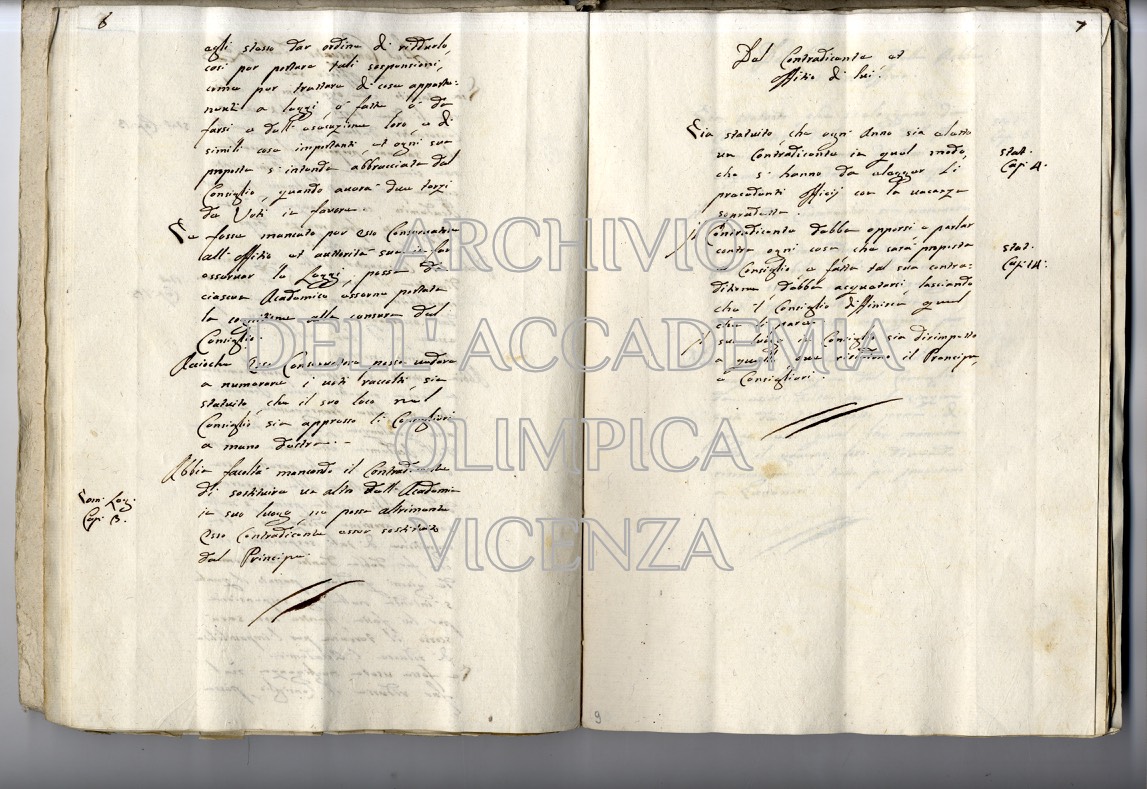 6
egli stesso dar ordine di ridduelo,
cosi per portare tali sospensioni,
come per trattare di cosa apparte:
nenti a leggi, ò fatte ò da
farsi e dall'esecuzione loro, e di
simili cose importanti, et ogni sua
proposta s'intenda abbracciata dal
Consiglio, quando averà due terzi
de Voti in favore.
Se fosse mancato per esso Conservatore
all'offitio et autorità sua in far
osservar le Leggi, possa di
ciascun Academico esserne portata
la cognitione alla censura del
Consiglio.
Acciochè Esso Conservatore possa vedere
a numerare i voti raccolti, sia
statuito, che il suo loco nel
Consiglio sia appresso li Consiglieri
a mano destra.
Abbia facoltà mancando il Contradicente
di sostituire un altro dell'Academia
in suo luogo, ne possa altrimente
Esso Contradicente esser sostituito
dal Principe.
Leg.
Cap. 3.
7
Del Contradicente et
offitio di lui.
Sia statuito, che ogni Anno sia eletto
un Contradicente in quel modo,
che si hanno da elegger li
precedenti Officij con la vacanza
sopradetta.
Il Contradicente debba opporsi e parlar
contra ogni cosa che sarà proposta
in Consiglio e fatta tal sua contra:
ditione debba acquetarsi, lasciando
che 'l Consiglio diffinisca quel
che li pare.
Il suo luogo in Consiglio sia dirimpetto
a quello, che ritiene il Prencipe,
e Consiglieri.
Stat.
Cap. 4.
Stat.
Cap. 14.
9
ARCHIVIO
DELL'ACCADEMIA
OLIMPICA
VICENZA